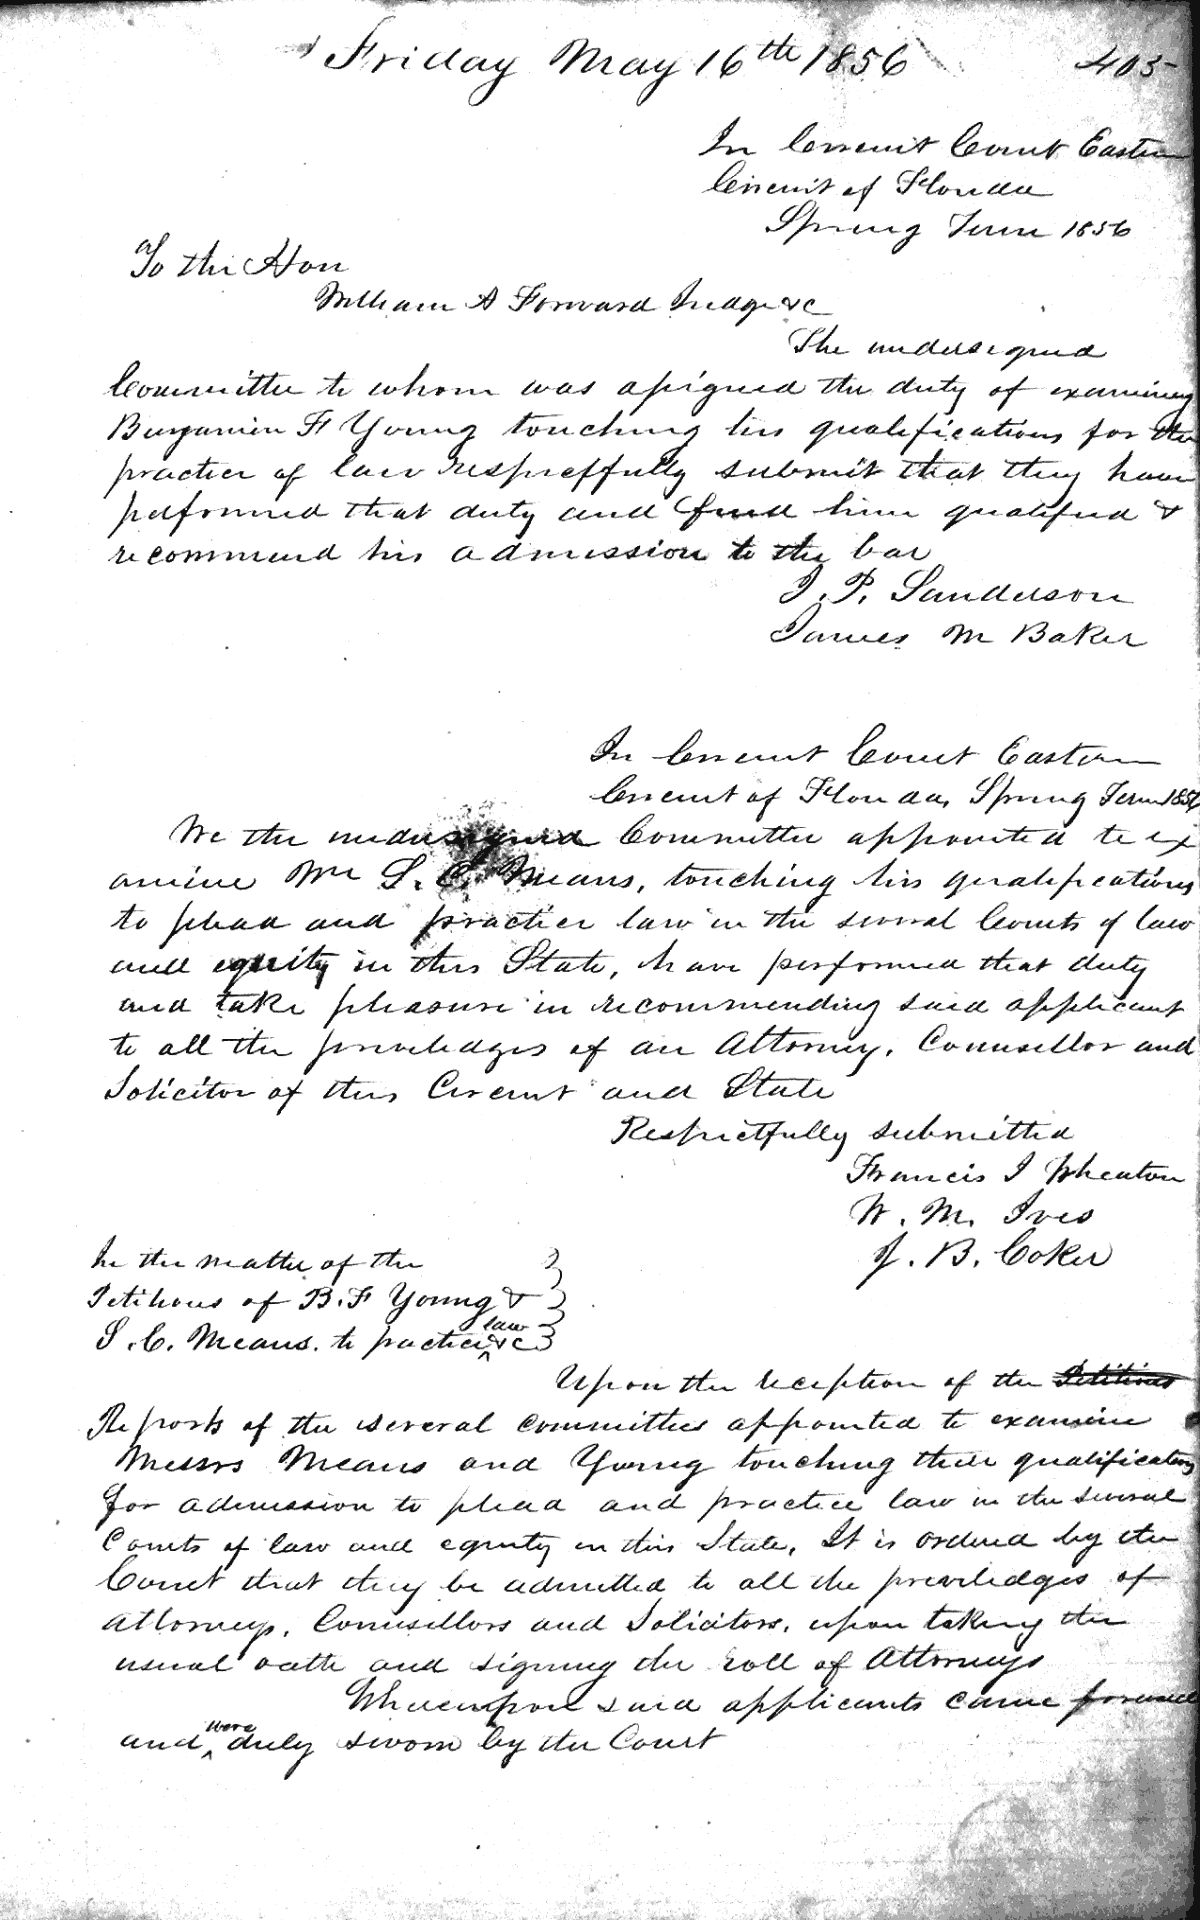 Friday May 16th 1856 405
In Circuit Court Eastern
Circuit of Florida
Spring Term 1856
To the Hon
William A Forward Judge &c
The undersigned
Committee to whom was assigned the duty of examining
Benjamin F Young touching his qualifications for the
practice of law respectfully submit that they have
performed that duty and find him qualified &
recommend his admission to the bar
J. P. Sanderson
James M Baker
In Circuit Court Eastern
Circuit of Florida, Spring Term 1856
We the undersigned Committee appointed to ex
amine Mr S. C. Means, touching his qualifications
to plead and practice law in the several Courts of law
and equity in this State, have performed that duty
and take pleasure in recommending said applicant
to all the priviledges of an Attorney, Counsellor and
Solicitor of this Circuit and State
Respectfully submitted
Francis I Wheaton
W. M. Ives
J. B. Coker
In the matter of the
Petitions of B. F Young &
S. C. Means. to practice law &c
Upon the reception of the Petitions
Reports of the several committees appointed to examine
Messrs Means and Young touching their qualifications
for admission to plead and practice law in the several
Courts of law and equity in this State, It is ordered by the
Court that they be admitted to all the priviledges of
Attorneys, Counsellors and Solicitors, upon taking the
usual oath and signing the roll of Attorneys
Whereupon said applicants came forward
and were duly sworn by the Court